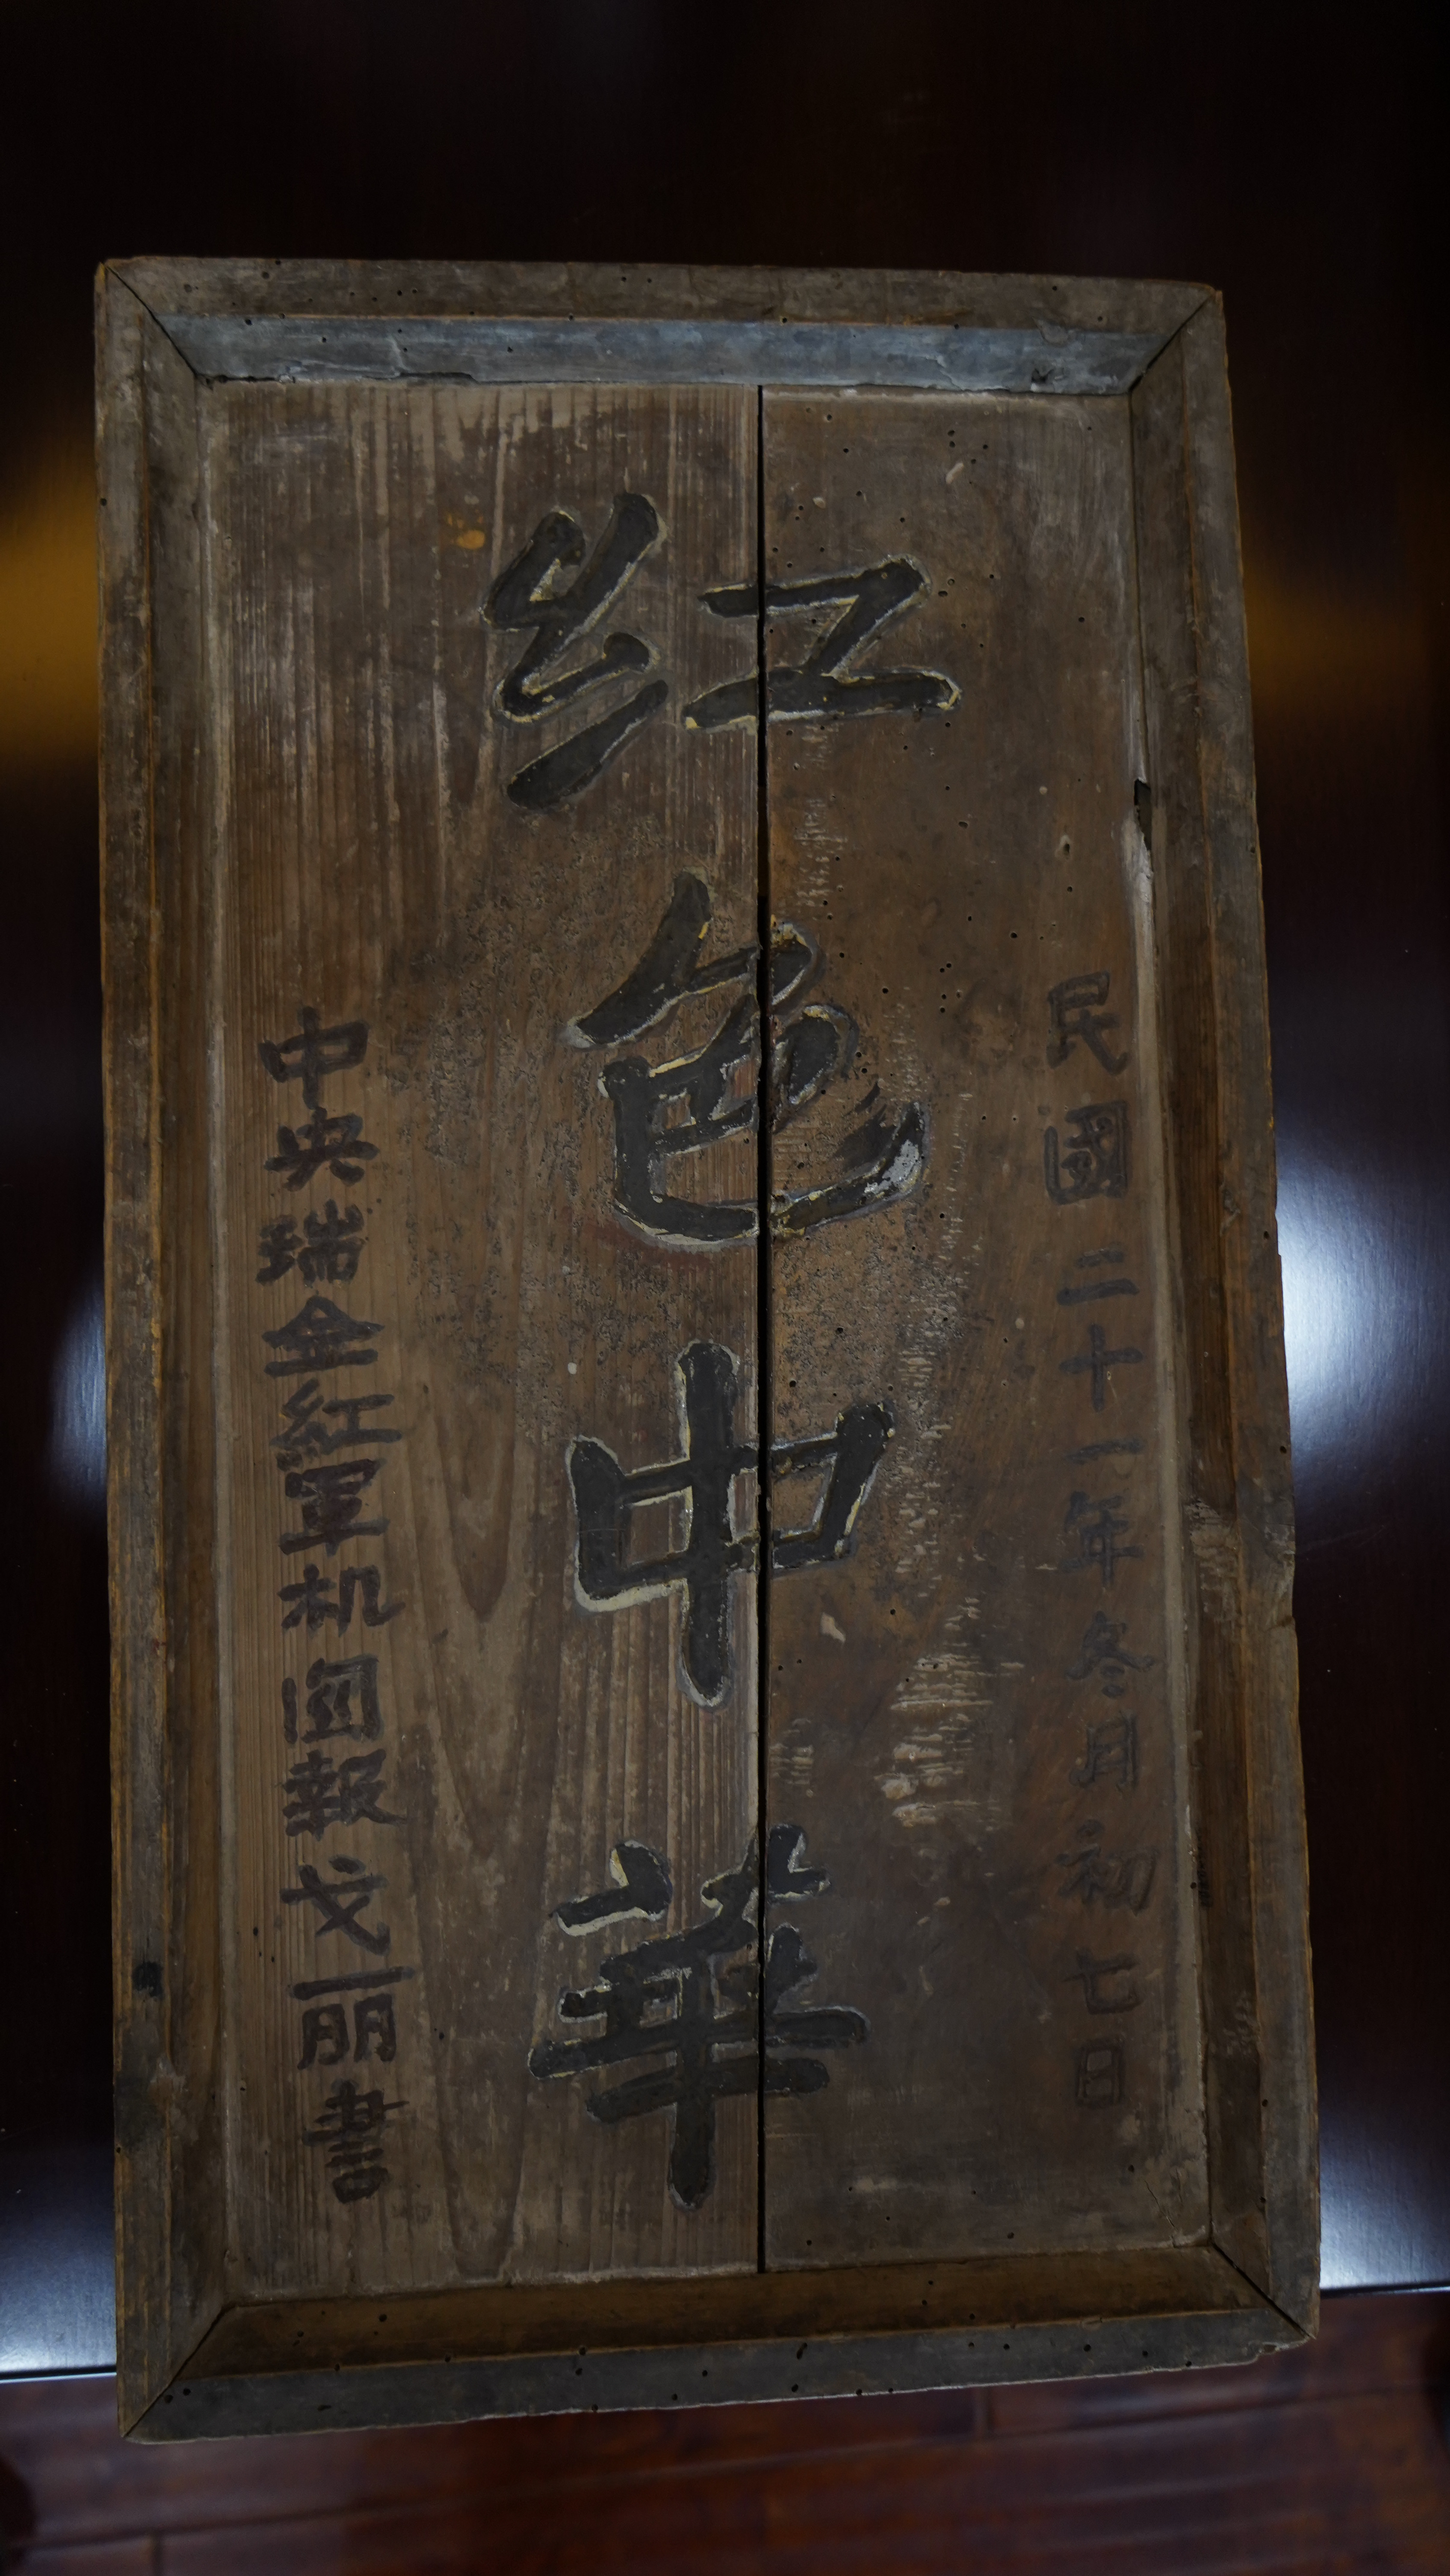 民國二十一年冬月初七日
紅色中華
中央瑞金紅軍机関報戈丽書